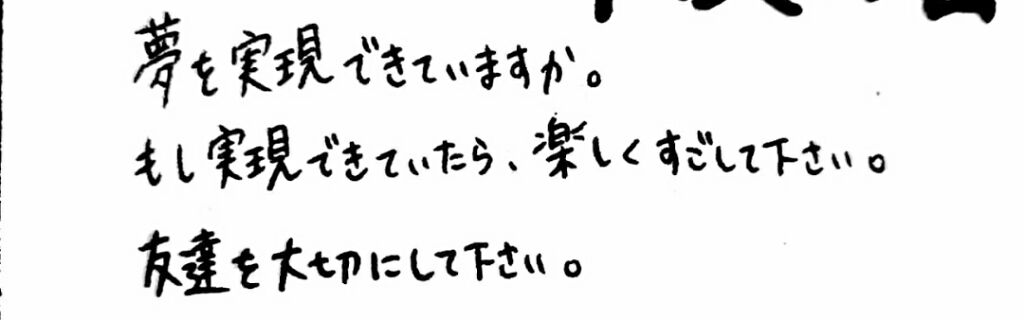 夢を実現できていますか。
もし実現できていたら、楽しくすごして下さい。
友達を大切にして下さい。